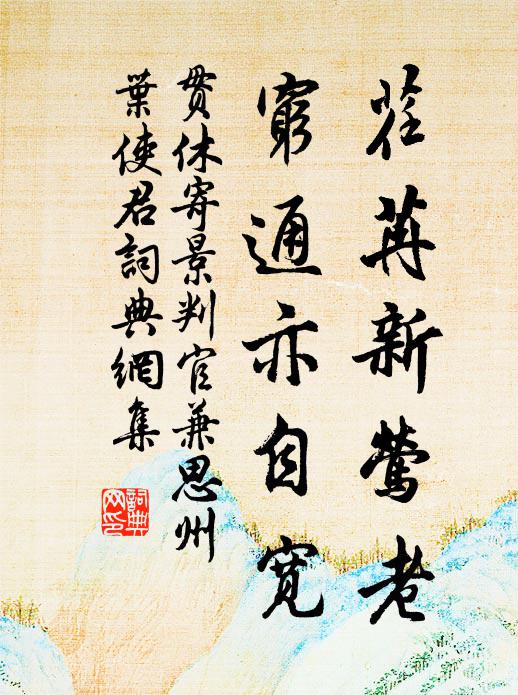 荏苒新鶯老
窮通亦自寬
貫休寄景判官兼思州
葉使君詞典網集
詞典網印